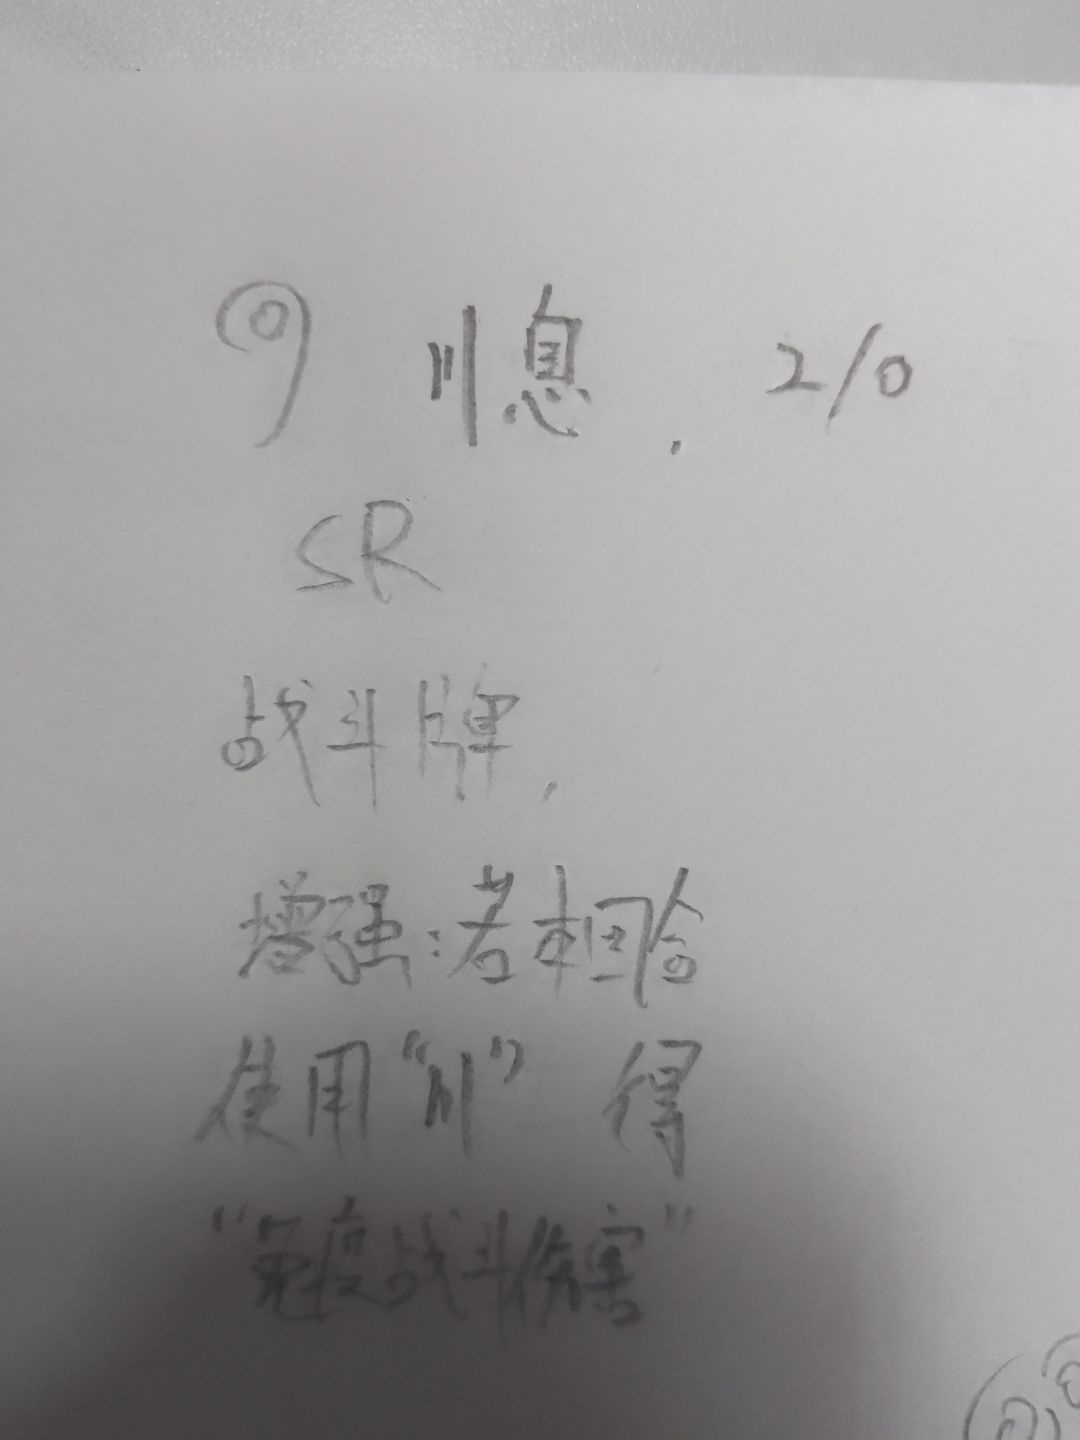 川息. 2/0
SR
战斗牌,
增强:若本回合
使用“川”得
“免疫战斗伤害”